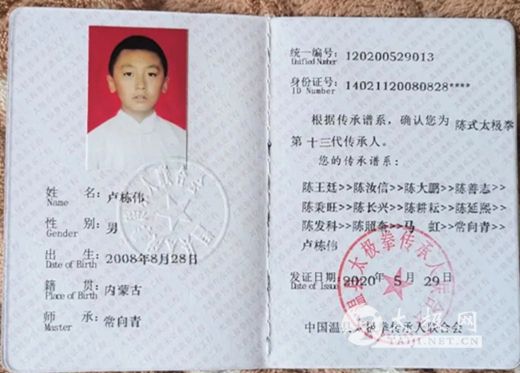 姓 名: 卢栋伟
Name
性 别: 男
Gender
出 生: 2008年8月28日
Date of Birth
籍 贯: 内蒙古
Place of Birth
师 承: 常向青
Master
统一编号: 120200529013
Unified Number
身份证号: 14021120080828****
ID Number
根据传承谱系,确认您为 陈式太极拳
第 十三代传承人。
您的传承谱系:
陈王廷>>陈汝信>>陈大鹏>>陈善志>>
陈秉旺>>陈长兴>>陈耕耘>>陈延熙>>
陈发科>>陈照奎>>马 虹>>常向青>>
卢栋伟
发证日期: 2020年 5 月 29 日
Date of Issue
中国温县太极拳传承人联合会
太极网
TAIJI.NET.CN